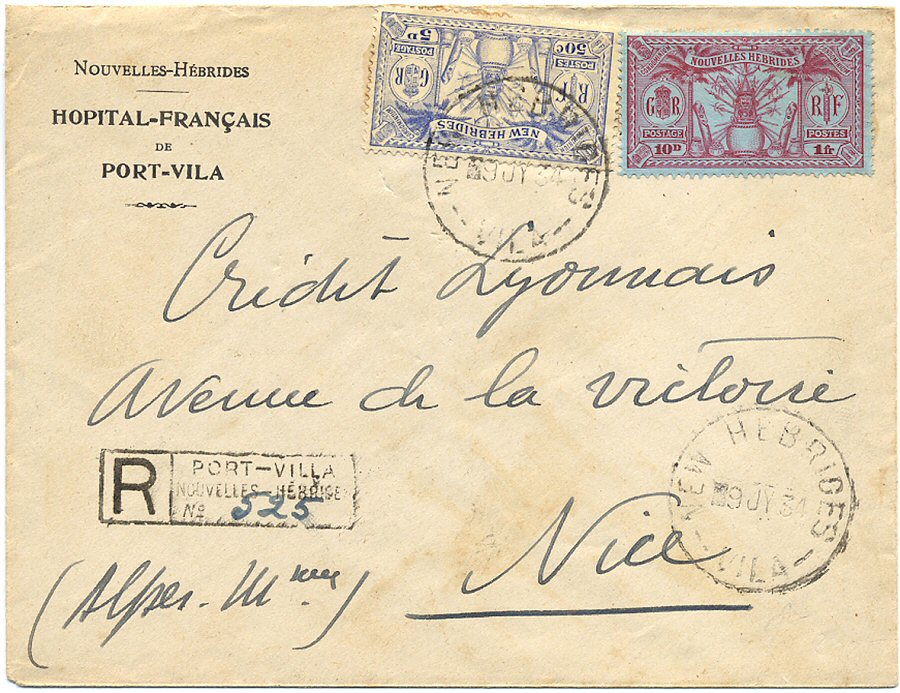 NOUVELLES-HÉBRIDES
HOPITAL-FRANÇAIS
DE
PORT-VILA
NEW HEBRIDES
RF
GR
POSTES
POSTAGE
50c
5D
NOUVELLES HÉBRIDES
GR
RF
POSTAGE
POSTES
10D
1fr
NEW HEBRIDES
9 JY 34
VILA
Crédit Lyonnais
Avenue de la victoire
R
PORT-VILLA
NOUVELLES-HÉBRIDE
No 525
NEW HEBRIDES
9 JY 34
VILA
Nice
(Alpes-Mmes)